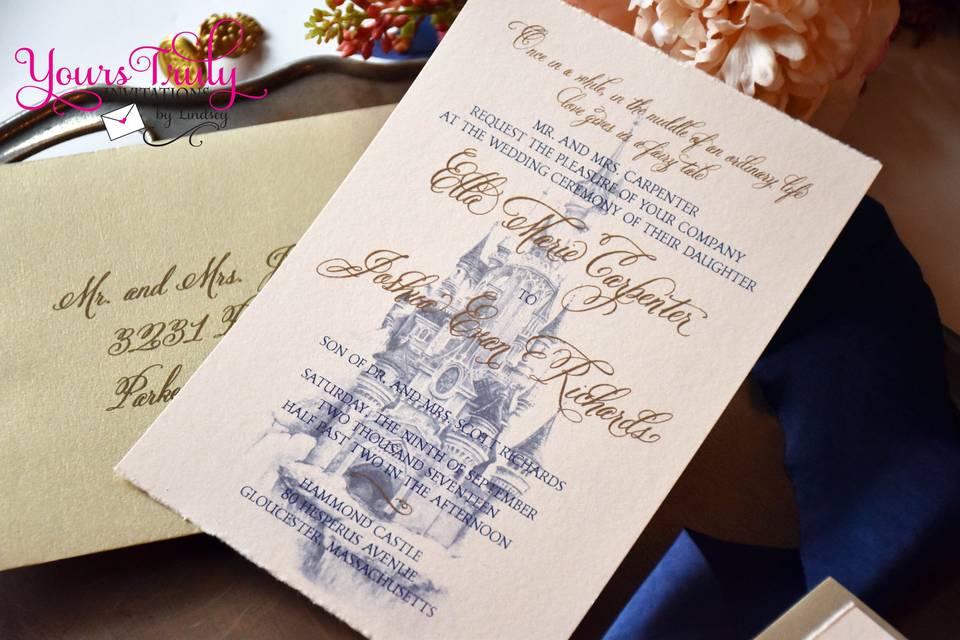 Yours Truly
INVITATIONS
by Lindsey
Once in a while, in the middle of an ordinary life
Love gives us a fairy tale
MR. AND MRS. CARPENTER
REQUEST THE PLEASURE OF YOUR COMPANY
AT THE WEDDING CEREMONY OF THEIR DAUGHTER
Ella Marie Carpenter
TO
Joshua Evan Richards
SON OF DR. AND MRS. SCOTT RICHARDS
SATURDAY, THE NINTH OF SEPTEMBER
TWO THOUSAND SEVENTEEN
HALF PAST TWO IN THE AFTERNOON
HAMMOND CASTLE
80 HESPERUS AVENUE
GLOUCESTER, MASSACHUSETTS
Mr. and Mrs.
3231
Parke